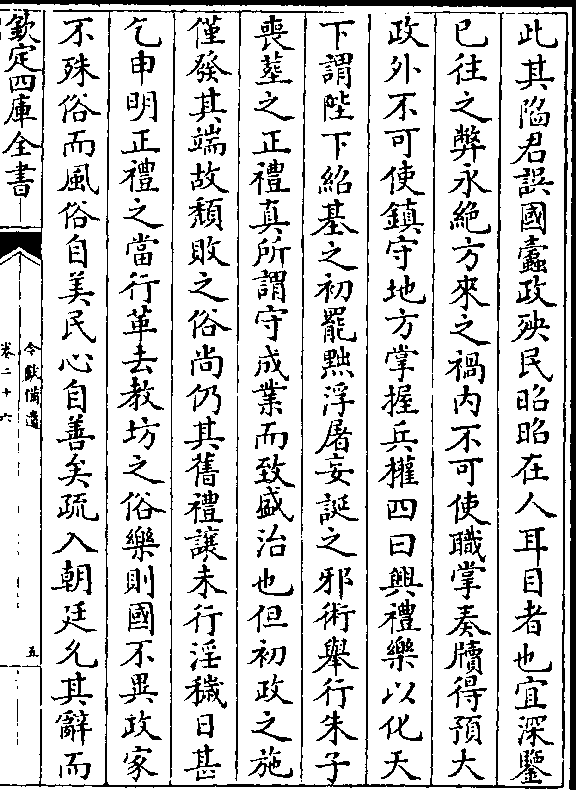 此其陷君誤國蠹政殃民昭昭在人耳目者也宜深鑒
已往之弊永絶方來之禍内不可使職掌奏牘得預大
政外不可使鎮守地方掌握兵權四曰興禮樂以化天
下謂陛下紹基之初罷黜浮屠妄誕之邪術舉行朱子
喪葬之正禮真所謂守成業而致盛治也但初政之施
僅發其端故頽敗之俗尚仍其舊禮讓未行淫穢日甚
乞申明正禮之當行革去教坊之俗樂則國不異政家
不殊俗而風俗自美民心自善矣疏入朝廷允其辭而
欽定四庫全書
今獻備遺
卷二十六
五